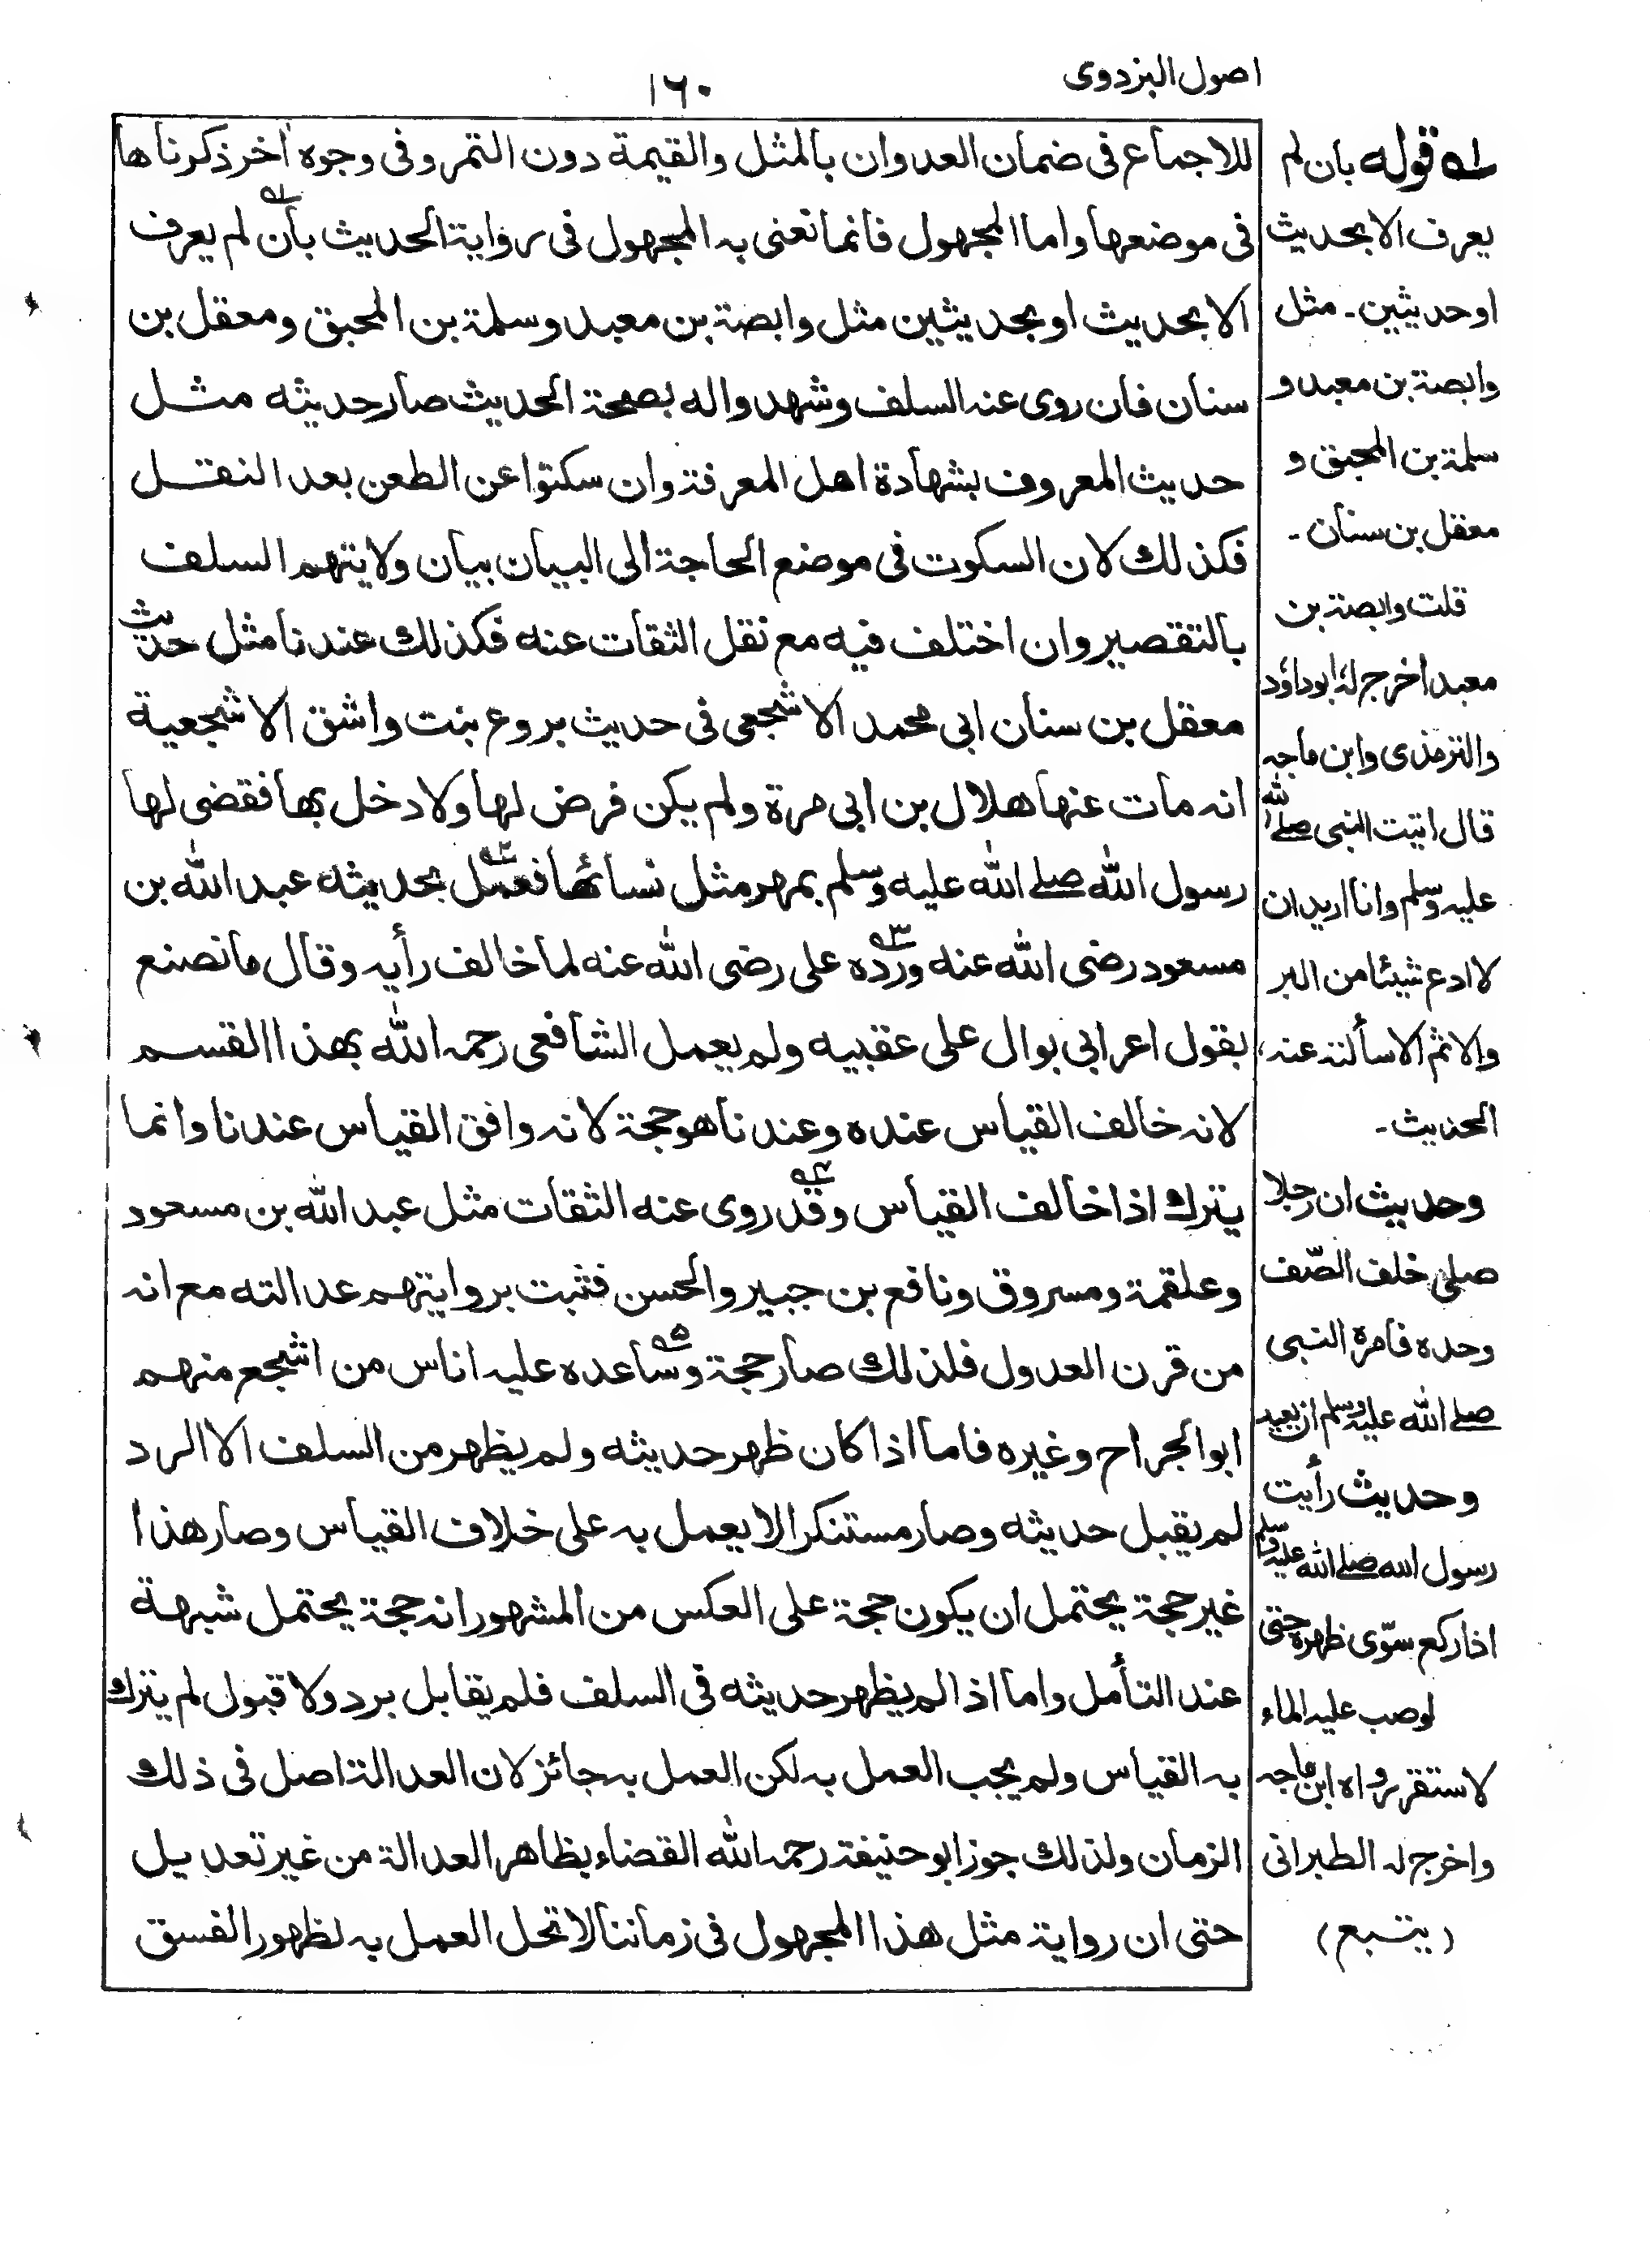 اصول البزدوى
١٦٠
للاجماع فى ضمان العدوان بالمثل والقيمة دون التمر وفى وجوه اخر ذكرناها
فى موضعها واما المجهول فانما نعنى به المجهول فى رواية الحديث بأن لم يعرف
الا بحديث او بحديثين مثل وابصة بن معبد وسلمة بن المحبق ومعقل بن
سنان فان روى عنه السلف وشهدوا له بصحة الحديث صار حديثه مثل
حديث المعروف بشهادة اهل المعرفة وان سكتوا عن الطعن بعد النقل
فكذلك لان السكوت فى موضع الحاجة الى البيان بيان ولا يتهم السلف
بالتقصير وان اختلف فيه مع نقل الثقات عنه فكذلك عندنا مثل حديث
معقل بن سنان ابى محمد الاشجعى فى حديث بروع بنت واشق الاشجعية
انه مات عنها هلال بن ابى مرة ولم يكن فرض لها ولا دخل بها فقضى لها
رسول الله صلى الله عليه وسلم بمهر مثل نسائها فعمل بحديثه عبد الله بن
مسعود رضى الله عنه ورده على رضى الله عنه لما خالف رأيه وقال ما نصنع
بقول اعرابى بوال على عقبيه ولم يعمل الشافعى رحمه الله بهذا القسم
لانه خالف القياس عنده وعندنا هو حجة لانه وافق القياس عندنا وانما
يترك اذا خالف القياس وقد روى عنه الثقات مثل عبد الله بن مسعود
وعلقمة ومسروق ونافع بن جبير والحسن فثبت بروايتهم عدالته مع انه
من قرن العدول فلذلك صار حجة وساعده عليه اناس من اشجع منهم
ابو الجراح وغيره فاما اذا كان ظهر حديثه ولم يظهر من السلف الا الرد
لم يقبل حديثه وصار مستنكرا لا يعمل به على خلاف القياس وصار هذا
غير حجة يحتمل ان يكون حجة على العكس من المشهور انه حجة يحتمل شبهة
عند التأمل واما اذا لم يظهر حديثه فى السلف فلم يقابل برد ولا قبول لم يترك
به القياس ولم يجب العمل به لكن العمل به جائز لان العدالة اصل فى ذلك
الزمان ولذلك جوز ابو حنيفة رحمه الله القضاء بظاهر العدالة من غير تعديل
حتى ان رواية مثل هذا المجهول فى زماننا لا تحل العمل به لظهور الفسق
١ه قوله بان لم
يعرف الا بحديث
او حديثين - مثل
وابصة بن معبد و
سلمة بن المحبق و
معقل بن سنان -
قلت وابصة بن
معبد اخرج له ابو داؤد
والترمذى وابن ماجه
قال اتيت النبى صلى الله
عليه وسلم وانا اريد ان
لا ادع شيئا من البر
والاثم الا سألته عنه،
الحديث -
وحديث ان رجلا
صلى خلف الصّف
وحده فامره النبى
صلى الله عليه وسلم ان يعيد
وحديث رأيت
رسول الله صلى الله عليه وسلم
اذا ركع سوّى ظهره حتى
لو صب عليه الماء
لاستقر رواه ابن ماجه
واخرج له الطبرانى
(يتبع)